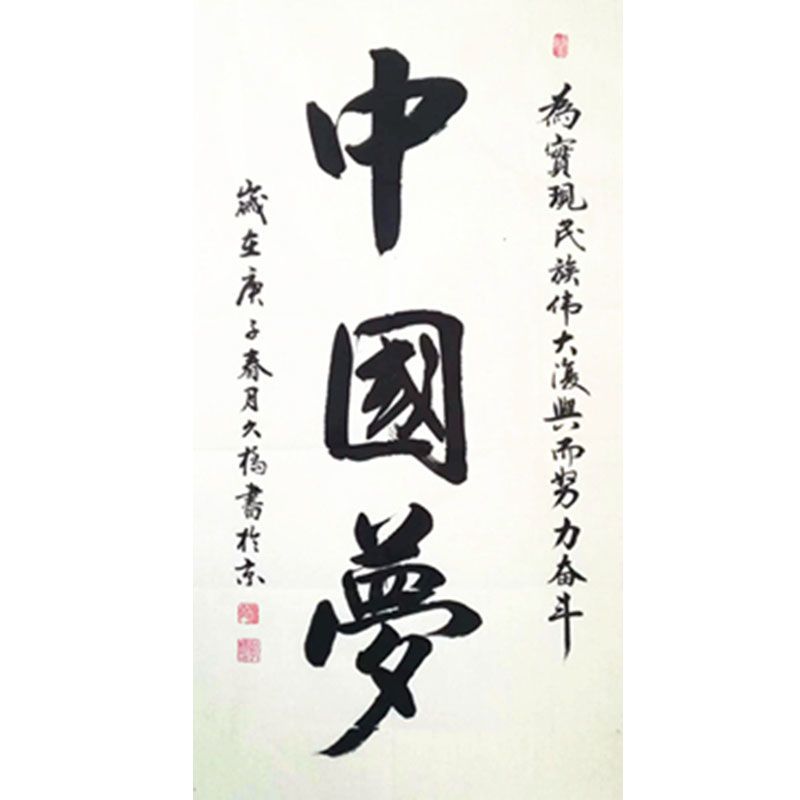 為實現民族伟大復興而努力奋斗
中國夢
歲在庚子春月久橋書於京